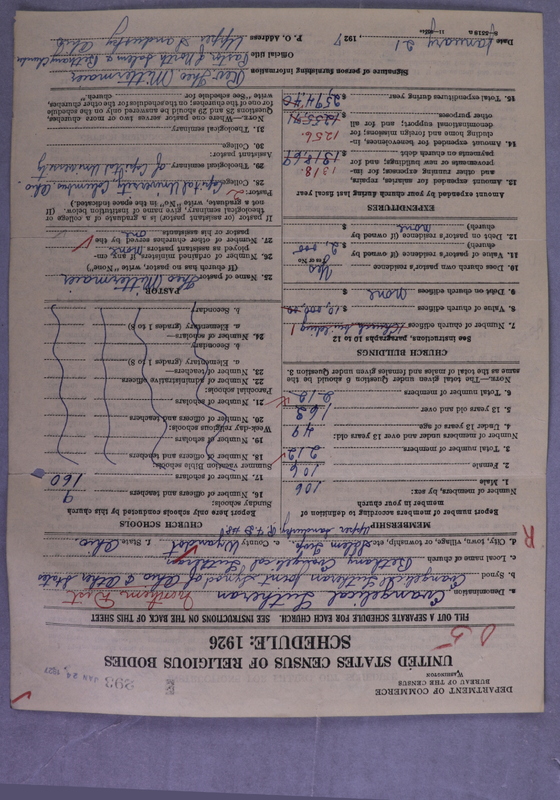 DEPARTMENT OF COMMERCE
BUREAU OF THE CENSUS
WASHINGTON
293
JAN 24 1927
UNITED STATES CENSUS OF RELIGIOUS BODIES
SCHEDULE: 1926
FILL OUT A SEPARATE SCHEDULE FOR EACH CHURCH. SEE INSTRUCTIONS ON THE BACK OF THIS SHEET
a. Denomination Evangelical Lutheran Northern Dist
b. Synod Evangelical Lutheran Joint Synod of Ohio & Other States
c. Local name of church Bethany Evangelical Lutheran
d. City, town, village, or township, etc. Salem Twp e. County Wyandot f. State Ohio
Upper Sandusky
MEMBERSHIP
Report number of members according to definition of
member in your church
Number of members, by sex:
1. Male 106
2. Female 106
3. Total number of members 212
Number of members under and over 13 years old:
4. Under 13 years of age 49
5. 13 years old and over 163
6. Total number of members 212
NOTE.—The total given under Question 6 should be the
same as the total of males and females given under Question 3.
CHURCH BUILDINGS
See instructions, paragraphs 10 to 12
7. Number of church edifices Church building 1
8. Value of church edifices $ 10,000.00
9. Debt on church edifices $ None
10. Does church own pastor's residence Yes
(Yes or No)
11. Value of pastor's residence (if owned by
church) $
12. Debt on pastor's residence (if owned by
church) $ None
EXPENDITURES
Amount expended by your church during last fiscal year
13. Amount expended for salaries, repairs,
and other running expenses; for im-
provements or new buildings; and for
payments on church debt $ 1318 1317.69
14. Amount expended for benevolences, in-
cluding home and foreign missions; for
denominational support; and for all
other purposes $ 1256 1255.71
15. Total expenditures during year $
CHURCH SCHOOLS
Report here only schools conducted by this church
Sunday schools:
16. Number of officers and teachers 9
17. Number of scholars 160
Summer vacation Bible schools:
18. Number of officers and teachers
19. Number of scholars
Week-day religious schools:
20. Number of officers and teachers
21. Number of scholars
Parochial schools:
22. Number of administrative officers
23. Number of teachers—
a. Elementary (grades 1 to 8)
b. Secondary
24. Number of scholars—
a. Elementary (grades 1 to 8)
b. Secondary
PASTOR
25. Name of pastor Theo Mittermaier
(If church has no pastor, write "None")
26. Number of ordained ministers, if any, em-
ployed as assistant pastors none
27. Number of other churches served by the
pastor or his assistants one
If pastor (or assistant pastor) is a graduate of a college or
theological seminary, give name of institution below. (If
not a graduate, write "No" in the space indicated.)
Pastor:
28. College Capital University Columbus Ohio
29. Theological seminary of Capital University
Assistant pastor:
30. College
31. Theological seminary
NOTE.—Where one pastor serves two or more churches,
Questions 28 and 29 should be answered only on the schedule
for one of the churches; on the schedules for the other churches,
write "See schedule for church."
Signature of person furnishing information Rev Theo Mittermaier
Official title Pastor of North Salem & Bethany Church
Date January 21 1927 P. O. Address Upper Sandusky Ohio